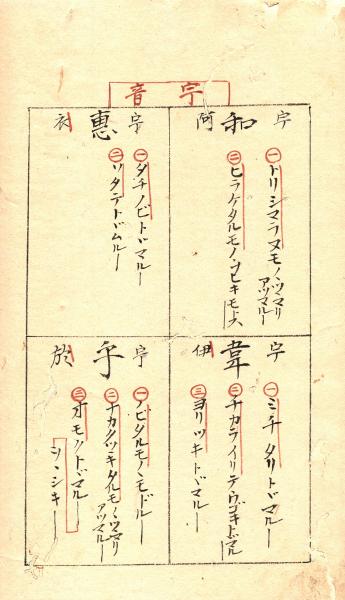 宇音
宇 和 阿
㊀トリシマラヌモノヽツマリアツマルー
㊁ヒラケタルモノヽヒキモドス
宇 惠 衣
㊀タチノビトドマルー
㊁ソタテトドムルー
宇 韋 伊
㊀ミチタリトドマルー
㊁チカライリテウゴキトドマル
㊂ヨリツキトドマルー
宇 乎 於
㊀ノビタルモノヽモドルー
㊁ナカクツキタルモノヽツマリアツマルー
㊂オモクトドマルー
シヽシキー